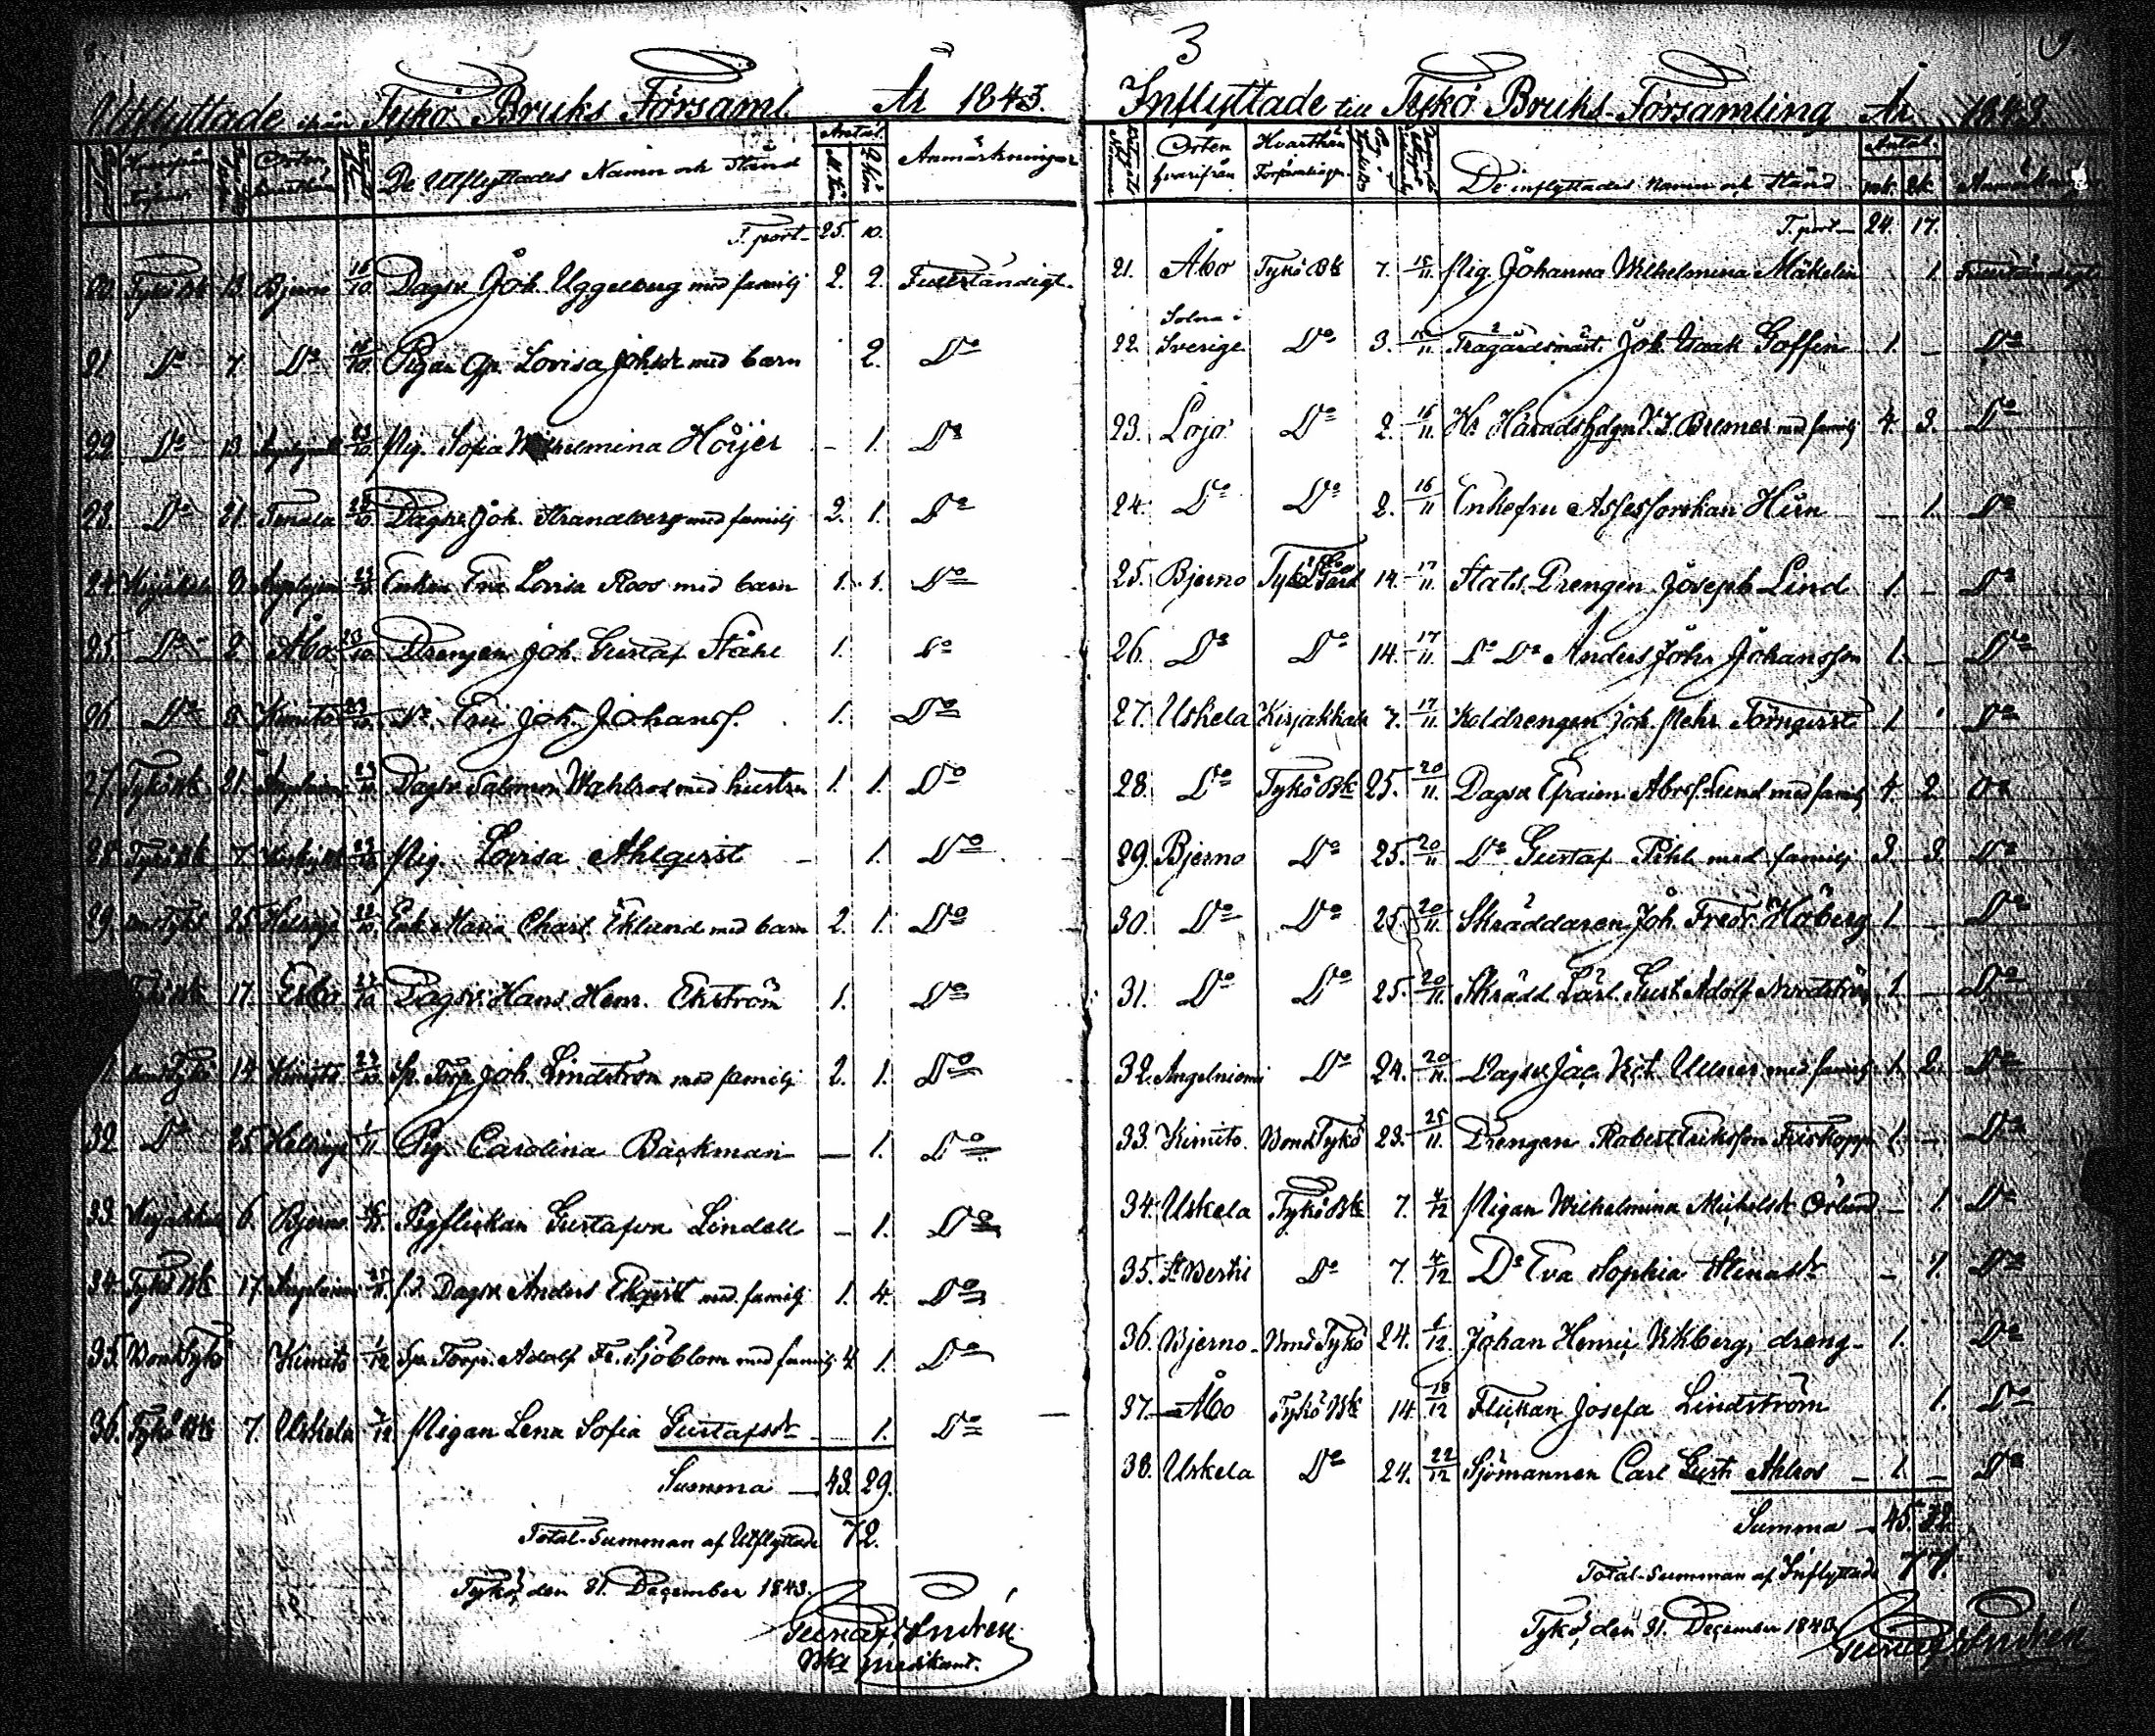 Utflyttade ifrån Tykö Bruks Församl. År 1843.
Orten hvarthän De Utflyttades Namn och Stånd Antal. M.Kön Q.Kön Anmärkningar
T. port 25. 10.
20. Tykö Bk 13. Bjerno 16/10. Dagsk. Joh. Uggelberg med familj 2. 2. Fullständigt.
21 Do 7. Do 16/10. Pigan Lovisa Johsdr med barn 2. Do
22. Do 13. 23/10. Pig. Sofia Wilhelmina Höijer - 1. Do
23. Do 21. Tenala Dagsk. Joh. Strandberg med familj 2. 1. Do
24. Kirjakkala Enkan Eva Lovisa Roos med barn 1. 1. Do
25. Do 2 Åbo 23/10 Drengen Joh. Gustaf Ståhl 1. Do
26. Do Kimito 23/10. Do Eric Joh. Johanss. 1. Do
27. Tykö Bk 21. 23/10. Dagsk. Salomon Wahlroos med hustru 1. 1. Do
28. Tykö Bk 7. 23/10 Pig. Lovisa Ahlqvist - 1. Do
29. Bond Tykö 25. Helsinge Enk. Maria Charl. Eklund med barn 2. 1. Do
Tykö Bk 17. Esbo 27/10 Dagsk. Hans Henr. Ekström 1. Do
Bond Tykö 14 Kimito 27/10. Sp. Torp. Joh. Lindström med familj 2. 1. Do
32. Do 25. Helsinge Pig. Carolina Bäckman - 1. Do
33. Kirjakkala 6. Bjerno Pigflickan Gustafva Lindell - 1. Do
34. Tykö Bk 17. Dagsk. Anders Ekqvist med familj 1. 4. Do
35. Bond Tykö Kimito 1/12 Sp. Torp. Adolf Fr. Sjöblom med familj 4. 1. Do
36. Tykö Bk 7. Uskela Pigan Lena Sofia Gustafsdr 1. Do
Summa 43. 29.
Total-Summan af Utflyttade 72.
Tykö, den 31. December 1843.
Bks predikant.
3
Inflyttade till Tykö Bruks-Församling År 1843.
Orten hvarifrån Hvarthän i Församlingen De inflyttades Namn och Stånd Antal. mk. qk. Anmärkning
T. port 24. 17.
21. Åbo Tykö Bk 7. 15/11. Pig. Johanna Wilhelmina Mäkelin 1. Fullständigt
22. Solna i Sverige Do 3. Trägårdsmäst. Joh. Isaak Goffin 1. - Do
23. Lojo Do 2. 16/11. Hr Häradshöfd. Bremer med familj 4. 3. Do
24. Do Do 2. 16/11 Enkefru Assessorskan - 1. Do
25. Bjerno Tykö Gård 14. 17/11. Stats Drengen Joseph Lind 1. - Do
26. Do Do 14. 17/11. Do Do Anders Johr Johansson 1. - Do
27. Uskela Kirjakkala 7. 17/11 Koldrengen Joh. Mehr Törnqvist 1. Do
28. Do Tykö Bk 25. 20/11. Dagsk. Efraim Abrs. Lund med familj 4. 2. Do
29. Bjerno Do 25. 20/11 Do Gustaf Pihl med familj 3. 3. Do
30. Do Do 25. 20/11. Skräddaren Joh. Fredr. Höberg 1. - Do
31. Do Do 25. 20/11. Skrädd. Lärl. Gust. Adolf Nordström 1. - Do
32. Angelniemi Do 24. 20/11. Dagsk. Jac. Vict. med familj 1. 2. Do
33. Kimito Bond Tykö 23. 25/11. Drengen Robert Eriksson Friskopp 1. - Do
34. Uskela Tykö Bk 7. 4/12 Pigan Wilhelmina Michelsdr Örlund - 1. Do
35. St Bertil Do 7. 4/12 Do Eva Sophia Stinasdr - 1. Do
36. Bjerno Bond Tykö 24. 6/12. Johan Henric Wikberg, dreng 1. Do
37. Åbo Tykö Bk 14. 18/12 Flickan Josefa Lindström 1. Do
38. Uskela Do 24. 22/12 Sjömannen Carl Gust. Ahlros 1. - Do
Summa 45. 32.
Total-Summan af Inflyttade 77.
Tykö, den 31. December 1843.